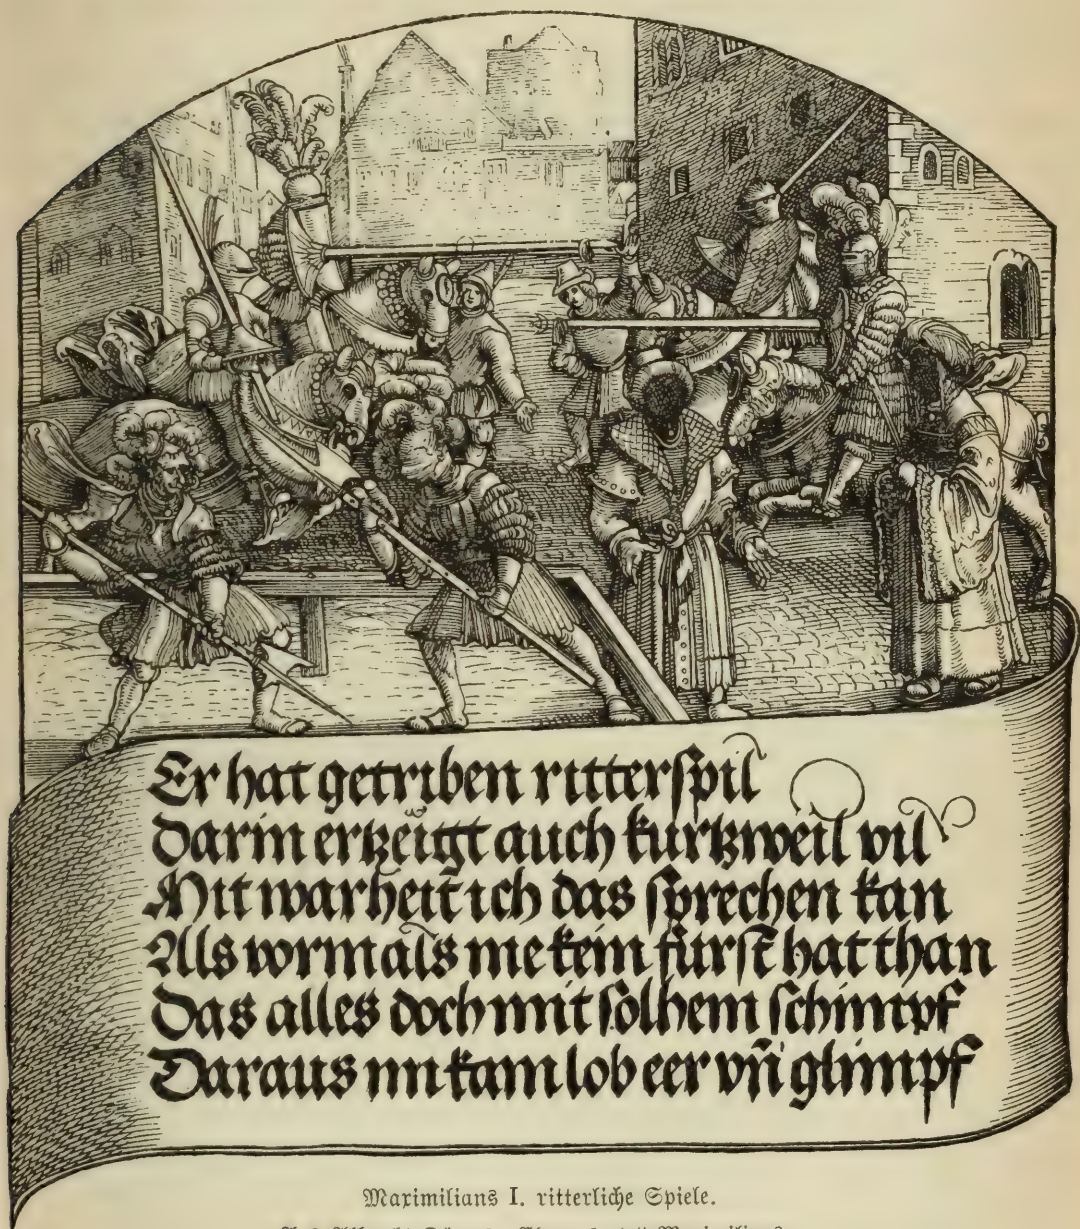 Er hat getriben ritterſpil
Darin ertzeigt auch kurtzweil vil
Mit warheit ich das ſprechen kan
Als vormals nie kein fürſt hat than
Das alles doch mit ſolhem ſchimpf
Daraus im kam lob eer vñ glimpf
Maximilians I. ritterliche Spiele.